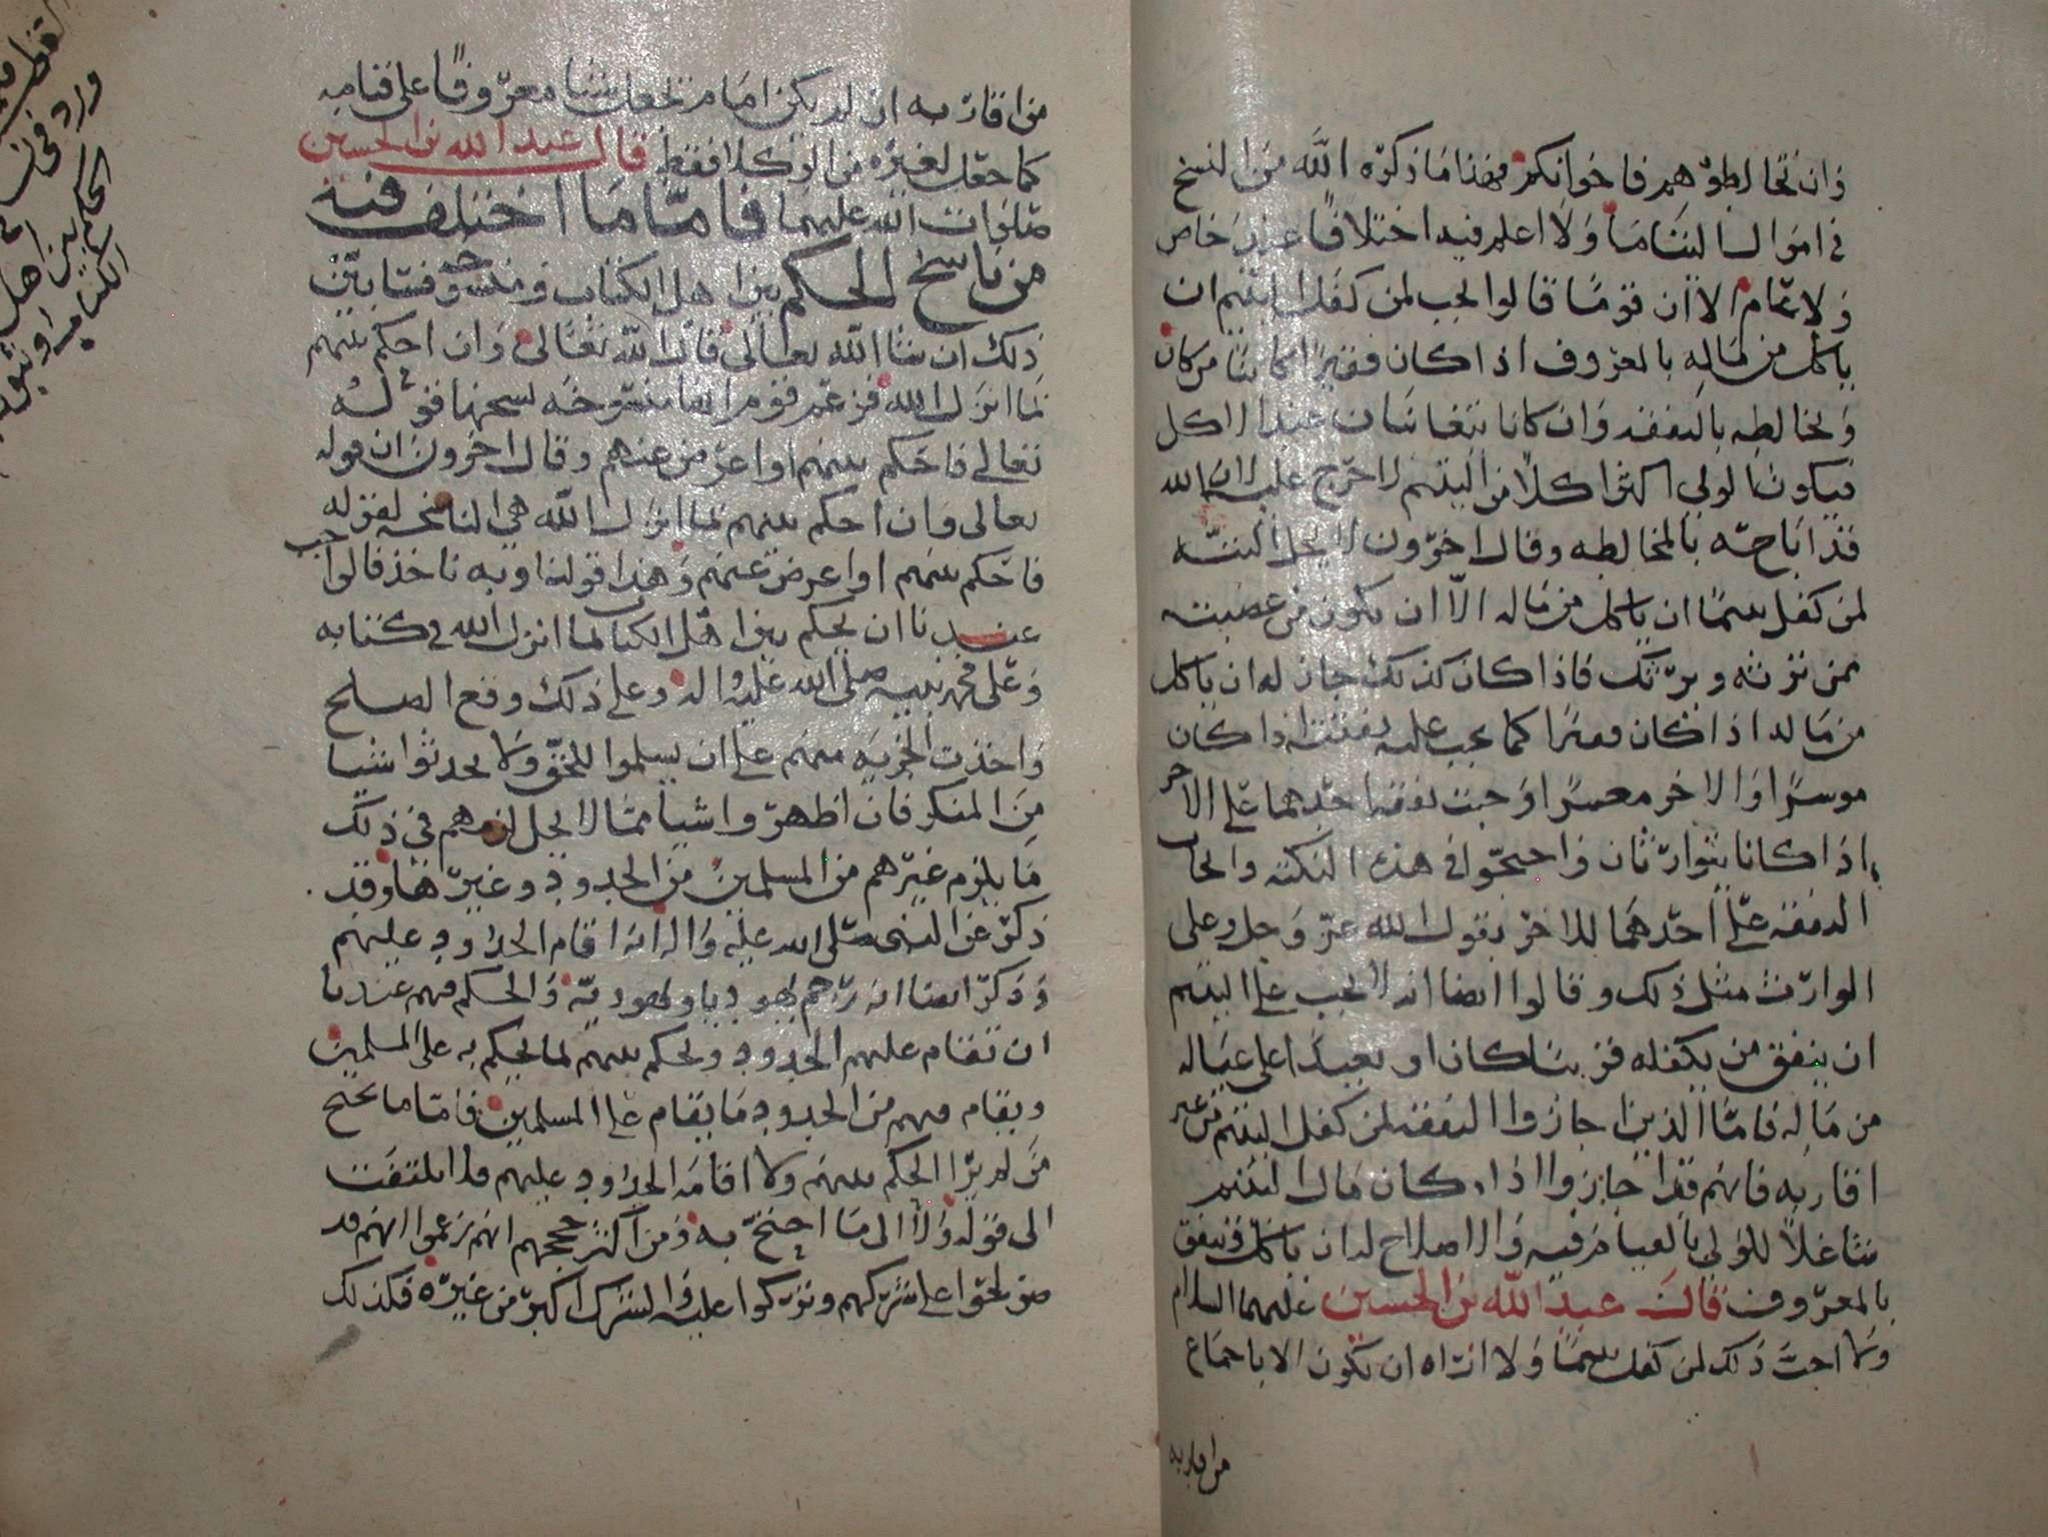 وان تخالطوهم فاخوانكم فهذا ما ذكره الله من النسخ
في اموال اليتاما ولا اعلم فيه اختلافا عند خاص
ولا عام الا ان قوما قالوا يجب لمن كفل اليتيم ان
ياكل من ماله بالمعروف اذا كان فقيرا كائنا من كان
ويخالطه بالنفقه وان كانا يتغابنان عند الاكل
فيكون الولي اكثر اكلا من اليتيم لا حرج عليه لان الله
قد اباحه بالمخالطه وقال اخرون لا يحل البته
لمن كفل يتيما ان ياكل من ماله الا ان يكون من عصبته
ممن يرثه ويرثك فاذا كان كذلك جاز له ان ياكل
من ماله اذا كان فقيرا كما يجب عليه نفقته اذا كان
موسرا والاخر معسرا وجبت نفقه احدهما على الاخر
اذا كانا يتوارثان واحتجوا في هذه النكته وايجاب
النفقه على احدهما للاخر بقول الله عز وجل وعلى
الوارث مثل ذلك وقالوا ايضا انه لا يجب على اليتيم
ان ينفق من يكفله قريبا كان او بعيدا على عياله
من ماله فاما الذين اجازوا النفقه لمن كفل اليتيم من غير
اقاربه فانهم قد اجازوا اذا كان مال اليتيم
شاغلا للولي بالقيام فيه والاصلاح له ان ياكل وينفق
بالمعروف قال عبد الله بن الحسين عليهما السلام
ولا احب ذلك لمن كفل يتيما ولا اراه ان يكون الا باجماع
من اقاربه
من اقاربه ان لم يكن امام تجعل شيئا معروفا على قيامه
كما جعل لغيره من الوكلا فقط قال عبد الله بن الحسين
صلوات الله عليهما فاما ما اختلف فيه
من ناسخ الحكم بين اهل الكتاب ومنسوخه وسنابين
ذلك ان شا الله تعالى قال الله تعالى وان احكم بينهم
بما انزل الله فزعم قوم انها منسوخه نسخها قوله
تعالى فاحكم بينهم او اعرض عنهم وقال اخرون ان قوله
تعالى وان احكم بينهم بما انزل الله هي الناسخه لقوله
فاحكم بينهم او اعرض عنهم وهذا قولنا وبه ناخذ فالواجب
عندنا ان يحكم بين اهل الكتاب بما انزل الله في كتابه
وعلى محمد نبيه صلى الله عليه واله وعلى ذلك وقع الصلح
واخذت الجزيه منهم على ان يسلموا للحق ولا يحدثوا شيا
من المنكر فان اظهروا شيا مما لا يحل لزمهم في ذلك
ما يلزم غيرهم من المسلمين من الحدود وغيرها وقد
ذكر عن النبي صلى الله عليه واله انه اقام الحدود عليهم
وذكر ايضا انه رجم يهوديا ويهوديه والحكم فيهم عندنا
ان تقام عليهم الحدود ويحكم بينهم بما يحكم به على المسلمين
ويقام فيهم من الحدود ما يقام على المسلمين فاما ما يحتج
من لم يرا الحكم بينهم ولا اقامه الحدود عليهم فلا يلتفت
الى قوله ولا الى ما احتج به ومن اكثر حججهم انهم زعموا انهم قد
صولحوا على شركهم وتركوا عليه والشرك اكبر من غيره فكذلك
ورد في
الحكم بين اهل
الكتاب